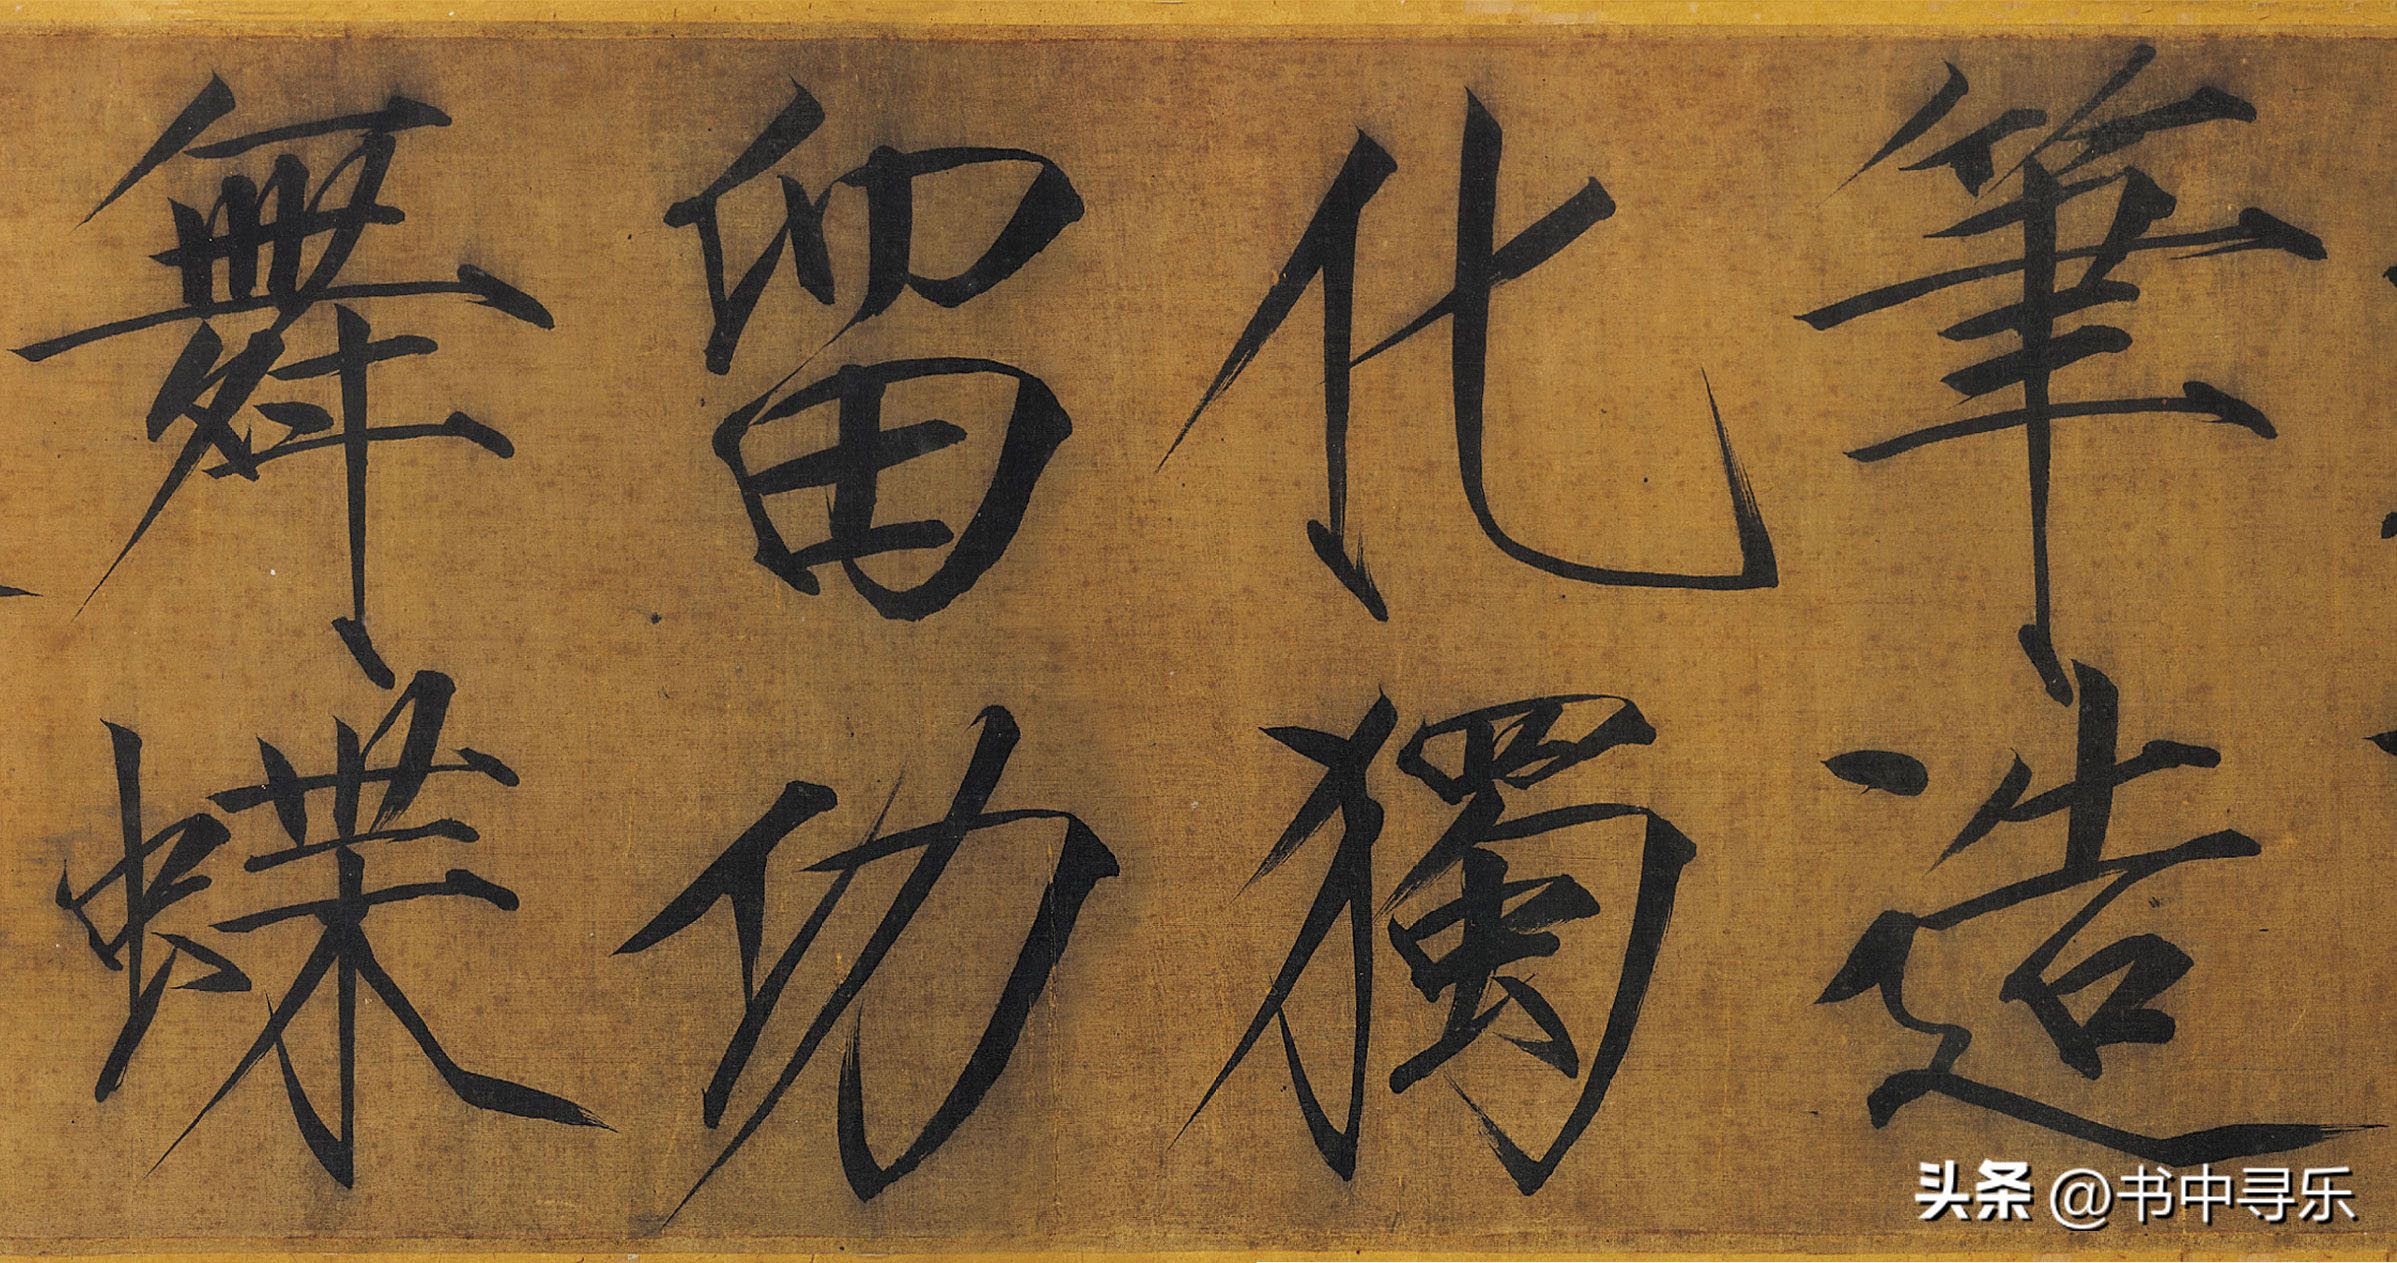 筆造
化獨
留功
舞蝶
头条 @书中寻乐